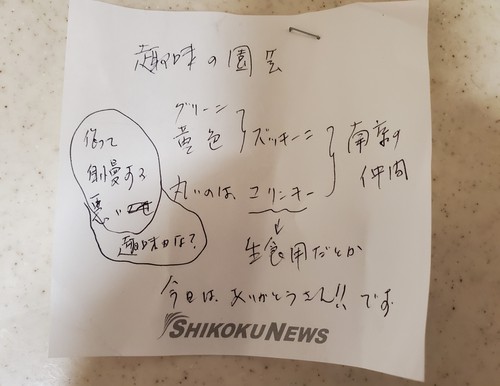 趣味の園芸
グリーン
黄色
ズッキーニ
丸いのは、コリンキー
南京の
仲間
↓
生食用だとか
作って
自慢する
悪い
趣味かな?
今日は、ありがとうさん!!です
SHIKOKU NEWS